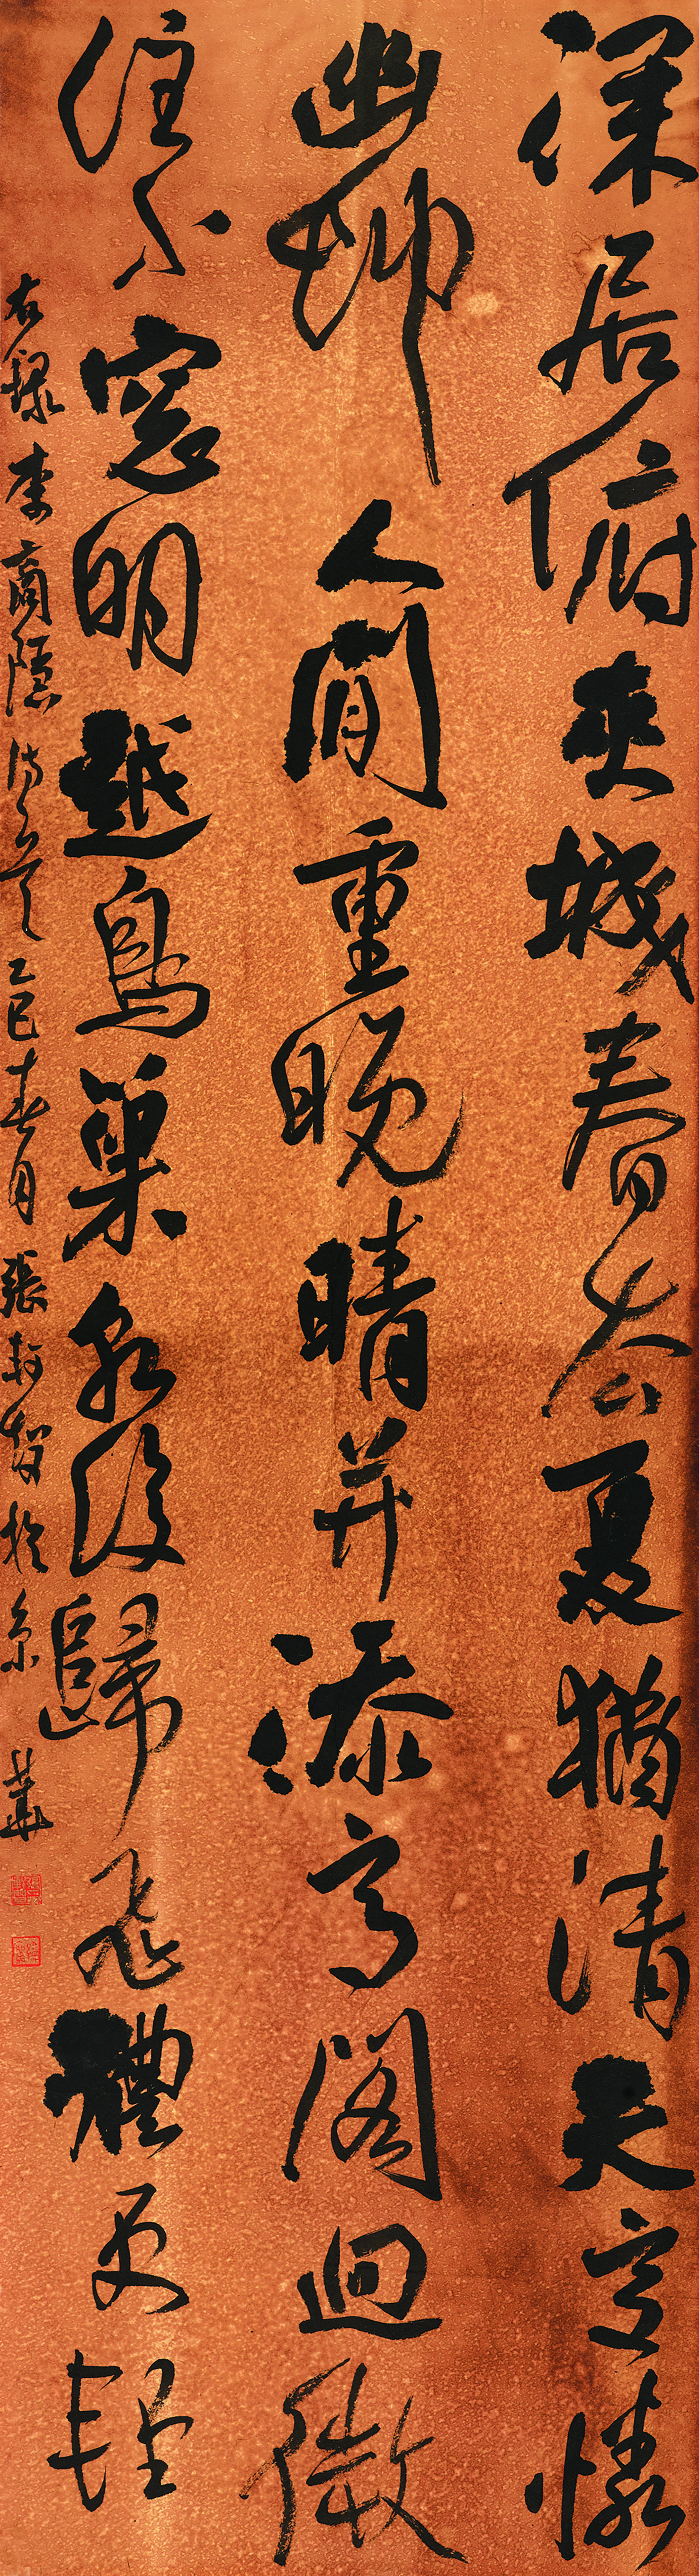 深居俯夾城春去夏猶清天意憐
幽艸人間重晚晴并添高閣迥微
注小窓明越鳥巢乾後歸飛體更輕
右録李商隱詩乙巳春月張於京華